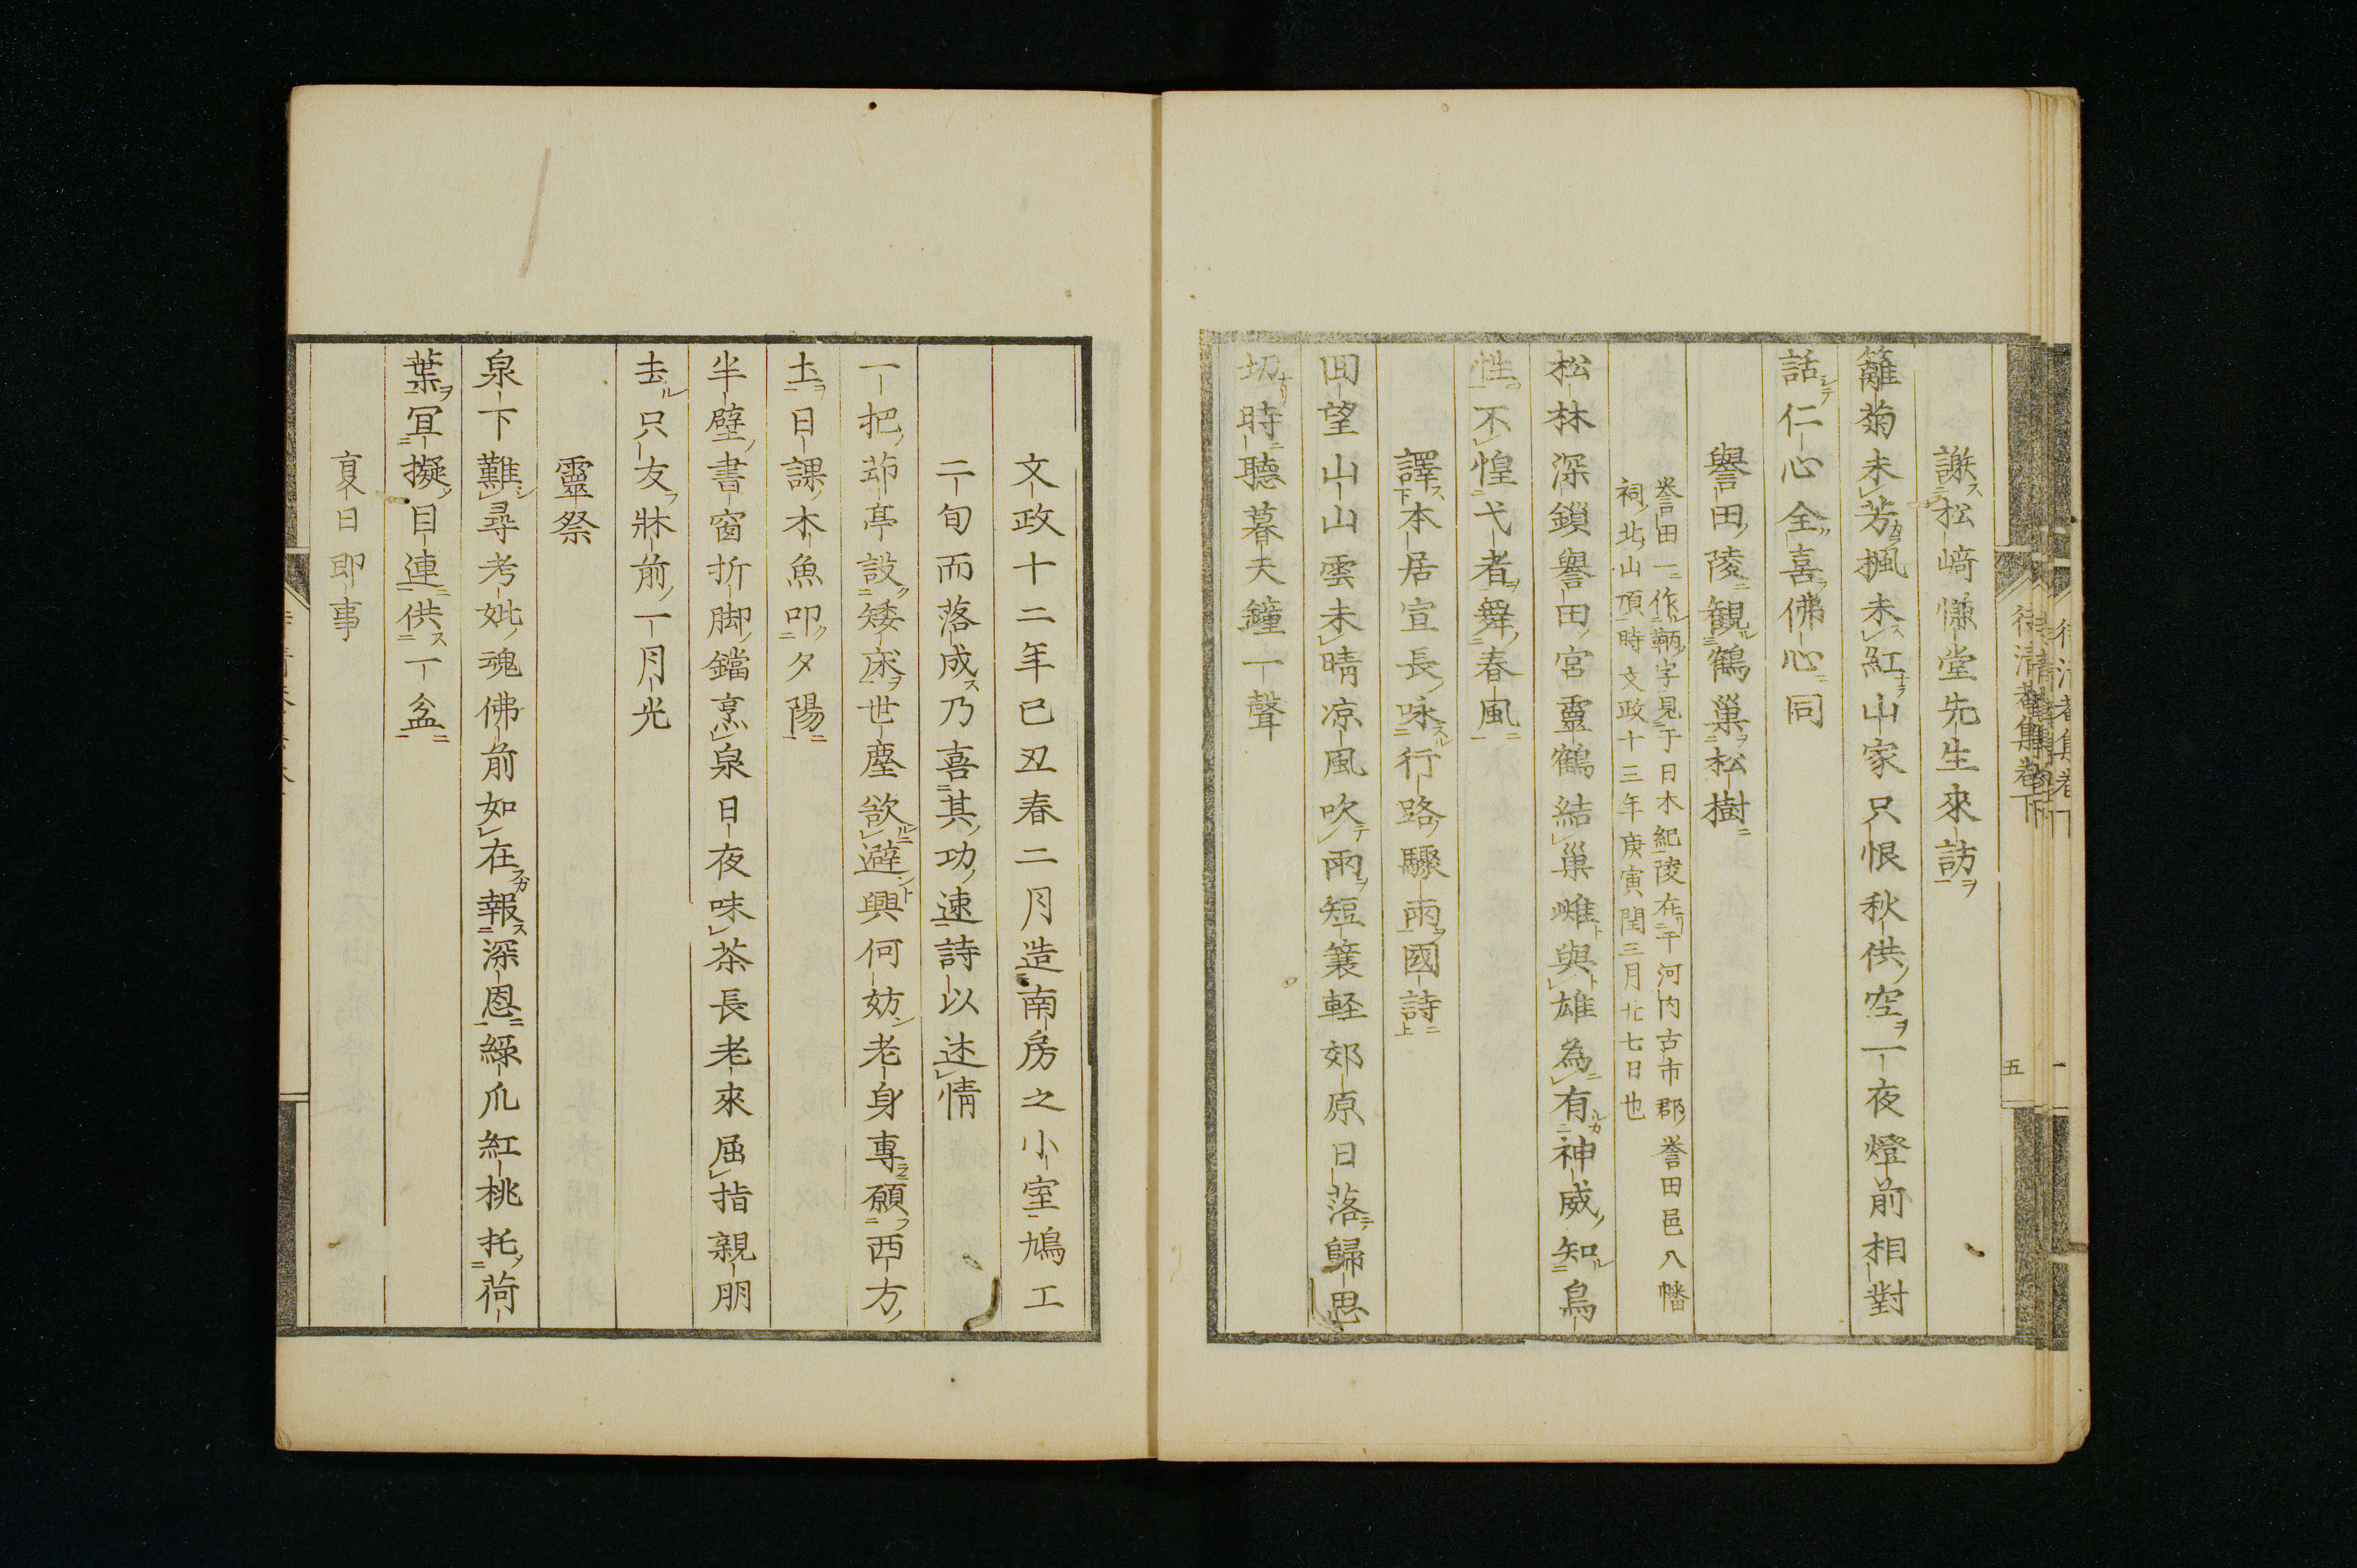 謝松﨑慊堂先生來訪
籬菊未芳楓未紅山家只恨秋供空一夜燈前相對
話仁心全喜佛心同
譽田陵観鶴巢松樹
誉田一作鞆字見于日本紀陵在于河内古市郡誉田邑八幡
祠北山頂時文政十三年庚寅閏三月廿七日也
松林深鎖譽田宮靈鶴結巢雌與雄為有神威知鳥
性不惶弋者舞春風
譯本居宣長咏行路驟雨國詩
回望山山雲未晴凉風吹雨短簑軽郊原日落歸思
切時聽暮天鐘一聲
文政十二年已丑春二月造南房之小室鳩工
二旬而落成乃喜其功速詩以述情
一把茆亭設矮床世塵欲避興何妨老身專願西方
土日課木魚叩夕陽
半壁書窗折脚鐺烹泉日夜味茶長老來屈指親朋
去只友牀前一月光
靈祭
泉下難尋考妣魂佛前如在報深恩綠爪紅桃托荷
葉冝擬目連供一盆
夏日即事